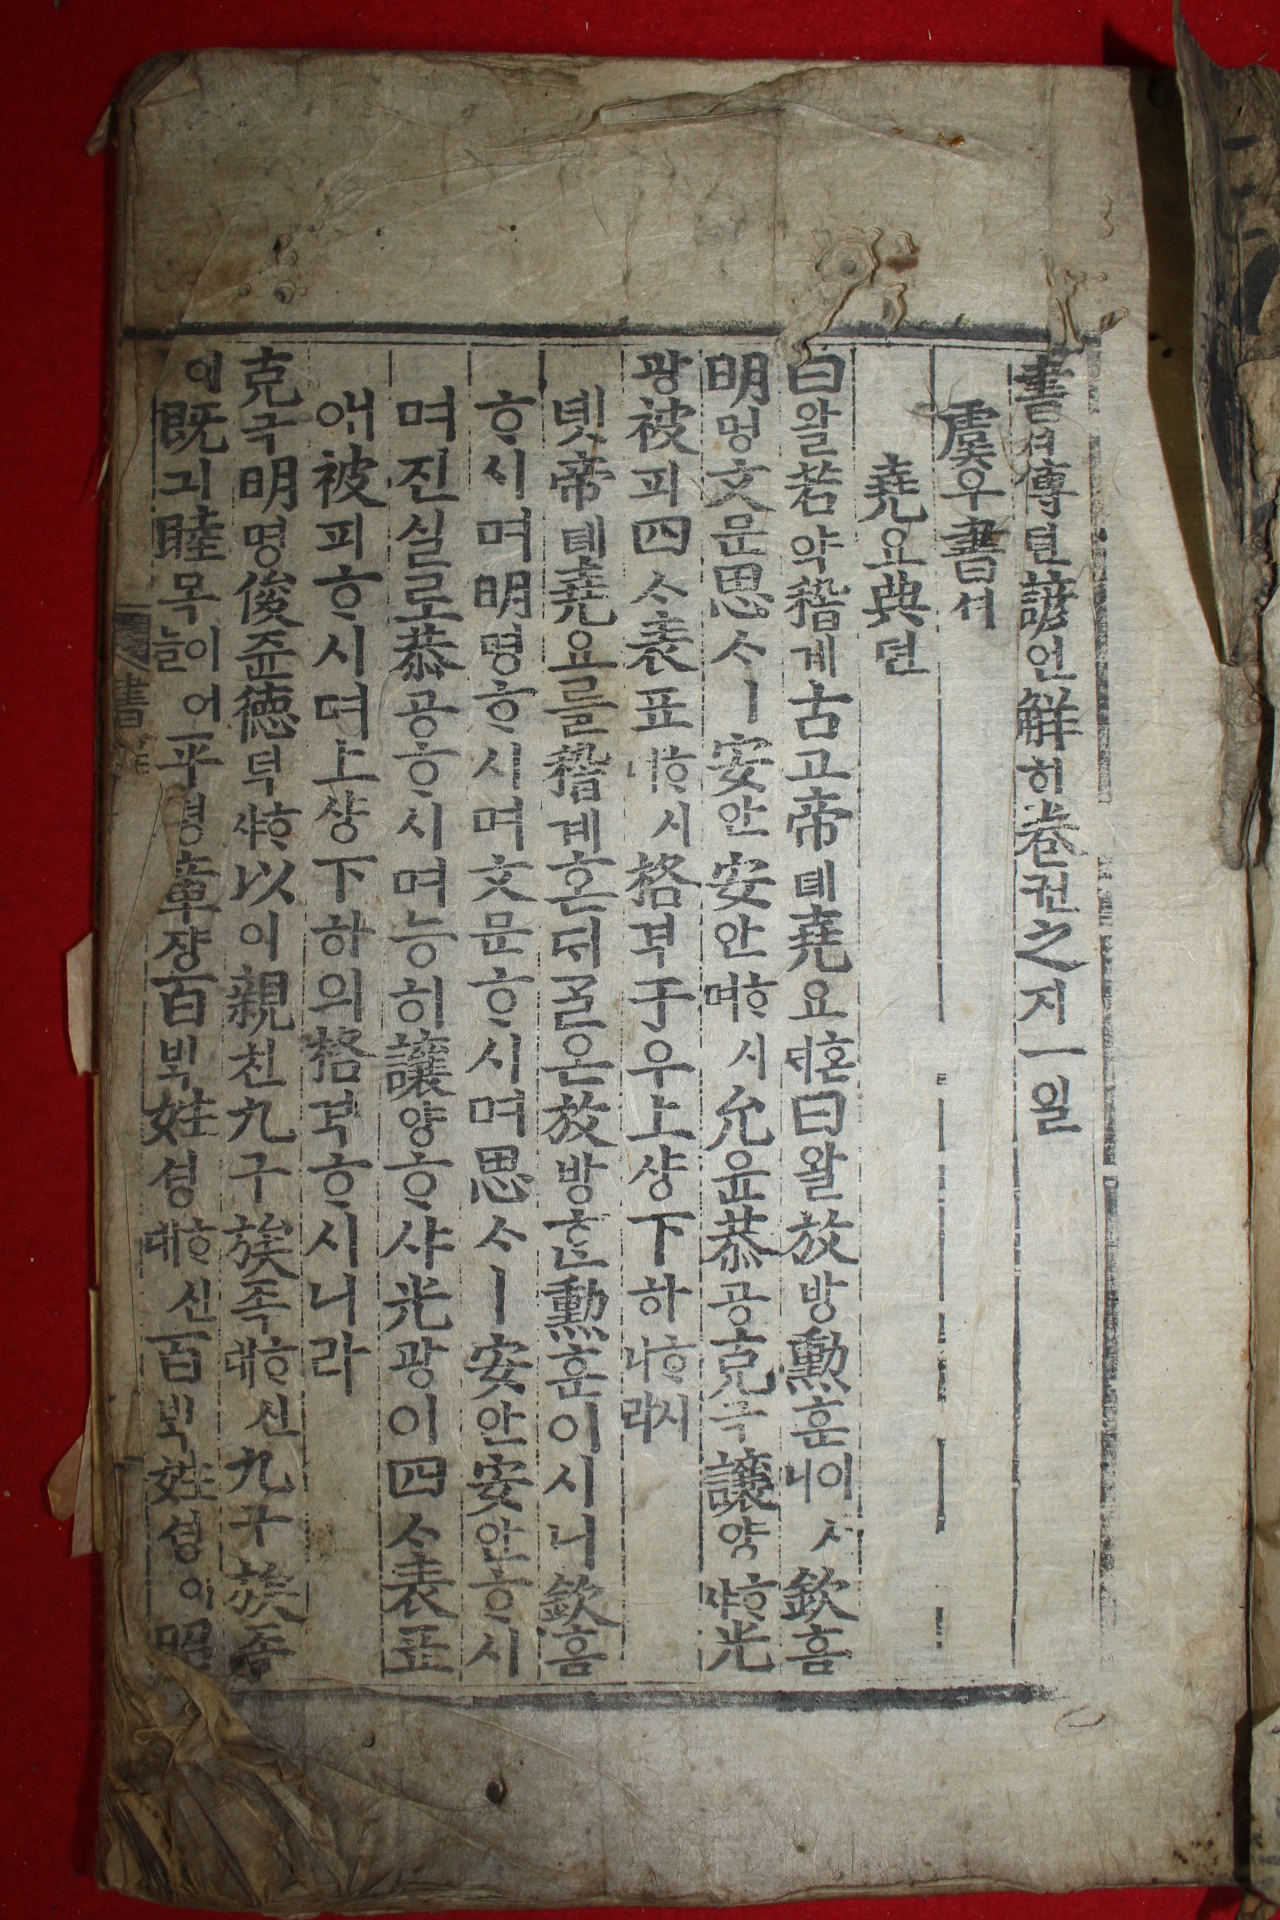 書셔傳뎐諺언解ᄒᆡ卷권之지一일
虞우書셔
堯요典뎐
曰왈若약稽계古고帝뎨堯요혼뎌曰왈放방勳훈이시니欽흠
明명文문思ᄉᆞㅣ安안安안ᄒᆞ시며允윤恭공克극讓양ᄒᆞ샤光
광被피四ᄉᆞ表표ᄒᆞ시며格격于우上샹下하ᄒᆞ시니라
녯帝뎨堯요ᄅᆞᆯ稽계혼ᄃᆡ ᄀᆞᆯ온放방ᄒᆞᆫ勳훈이시니欽흠
ᄒᆞ시며明명ᄒᆞ시며文문ᄒᆞ시며思ᄉᆞㅣ安안安안ᄒᆞ시
며진실로恭공ᄒᆞ시며능히讓양ᄒᆞ샤光광이四ᄉᆞ表표
애被피ᄒᆞ시며上샹下하의格격ᄒᆞ시니라
克극明명俊쥰德덕ᄒᆞ샤以이親친九구族족ᄒᆞ신대九구族족
이旣긔睦목이어늘平평章쟝百ᄇᆡᆨ姓셩ᄒᆞ신대百ᄇᆡᆨ姓셩이昭